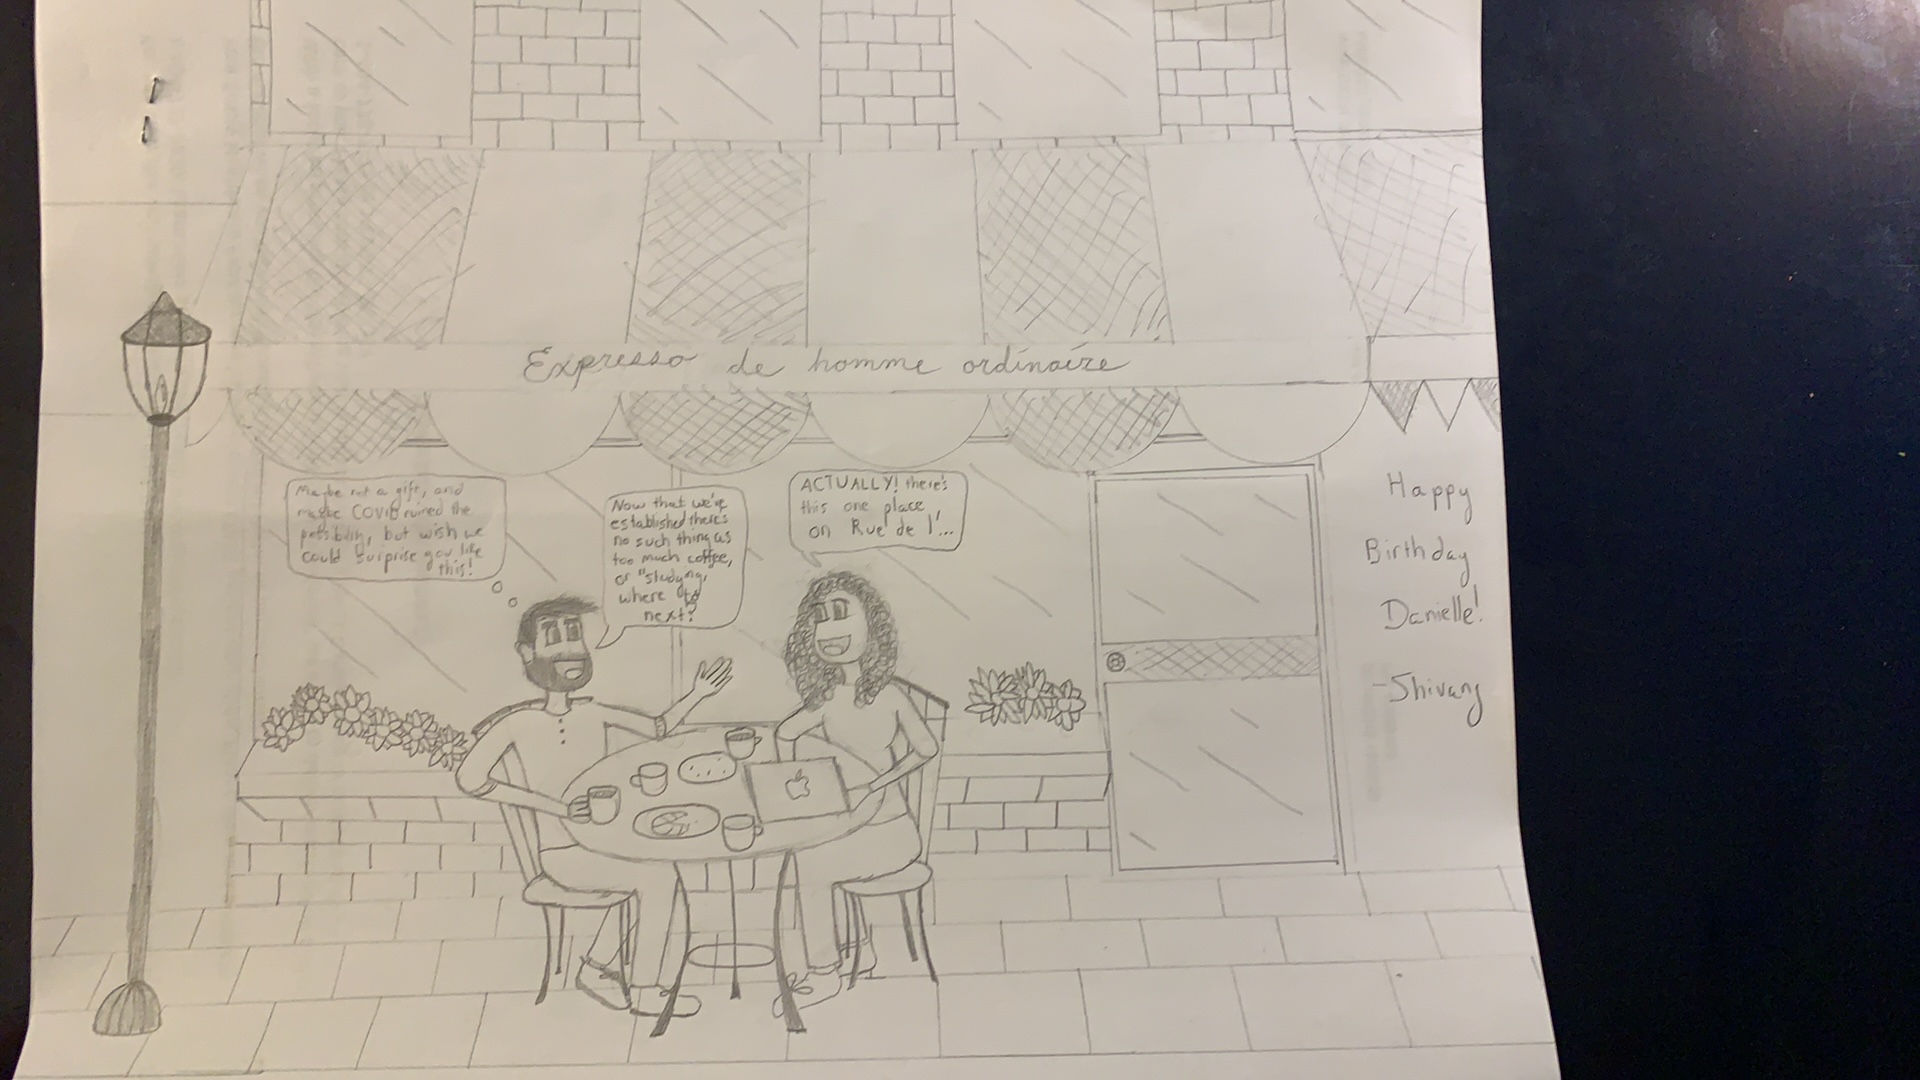 Expresso de homme ordinaire
Maybe not a gift, and
maybe COVID ruined the
possibility, but wish we
could surprise you like
this!
Now that we've
established there's
no such thing as
too much coffee,
or "studying,
where to
next?
ACTUALLY! there's
this one place
on Rue de l'...
Happy
Birthday
Danielle!
-Shivang